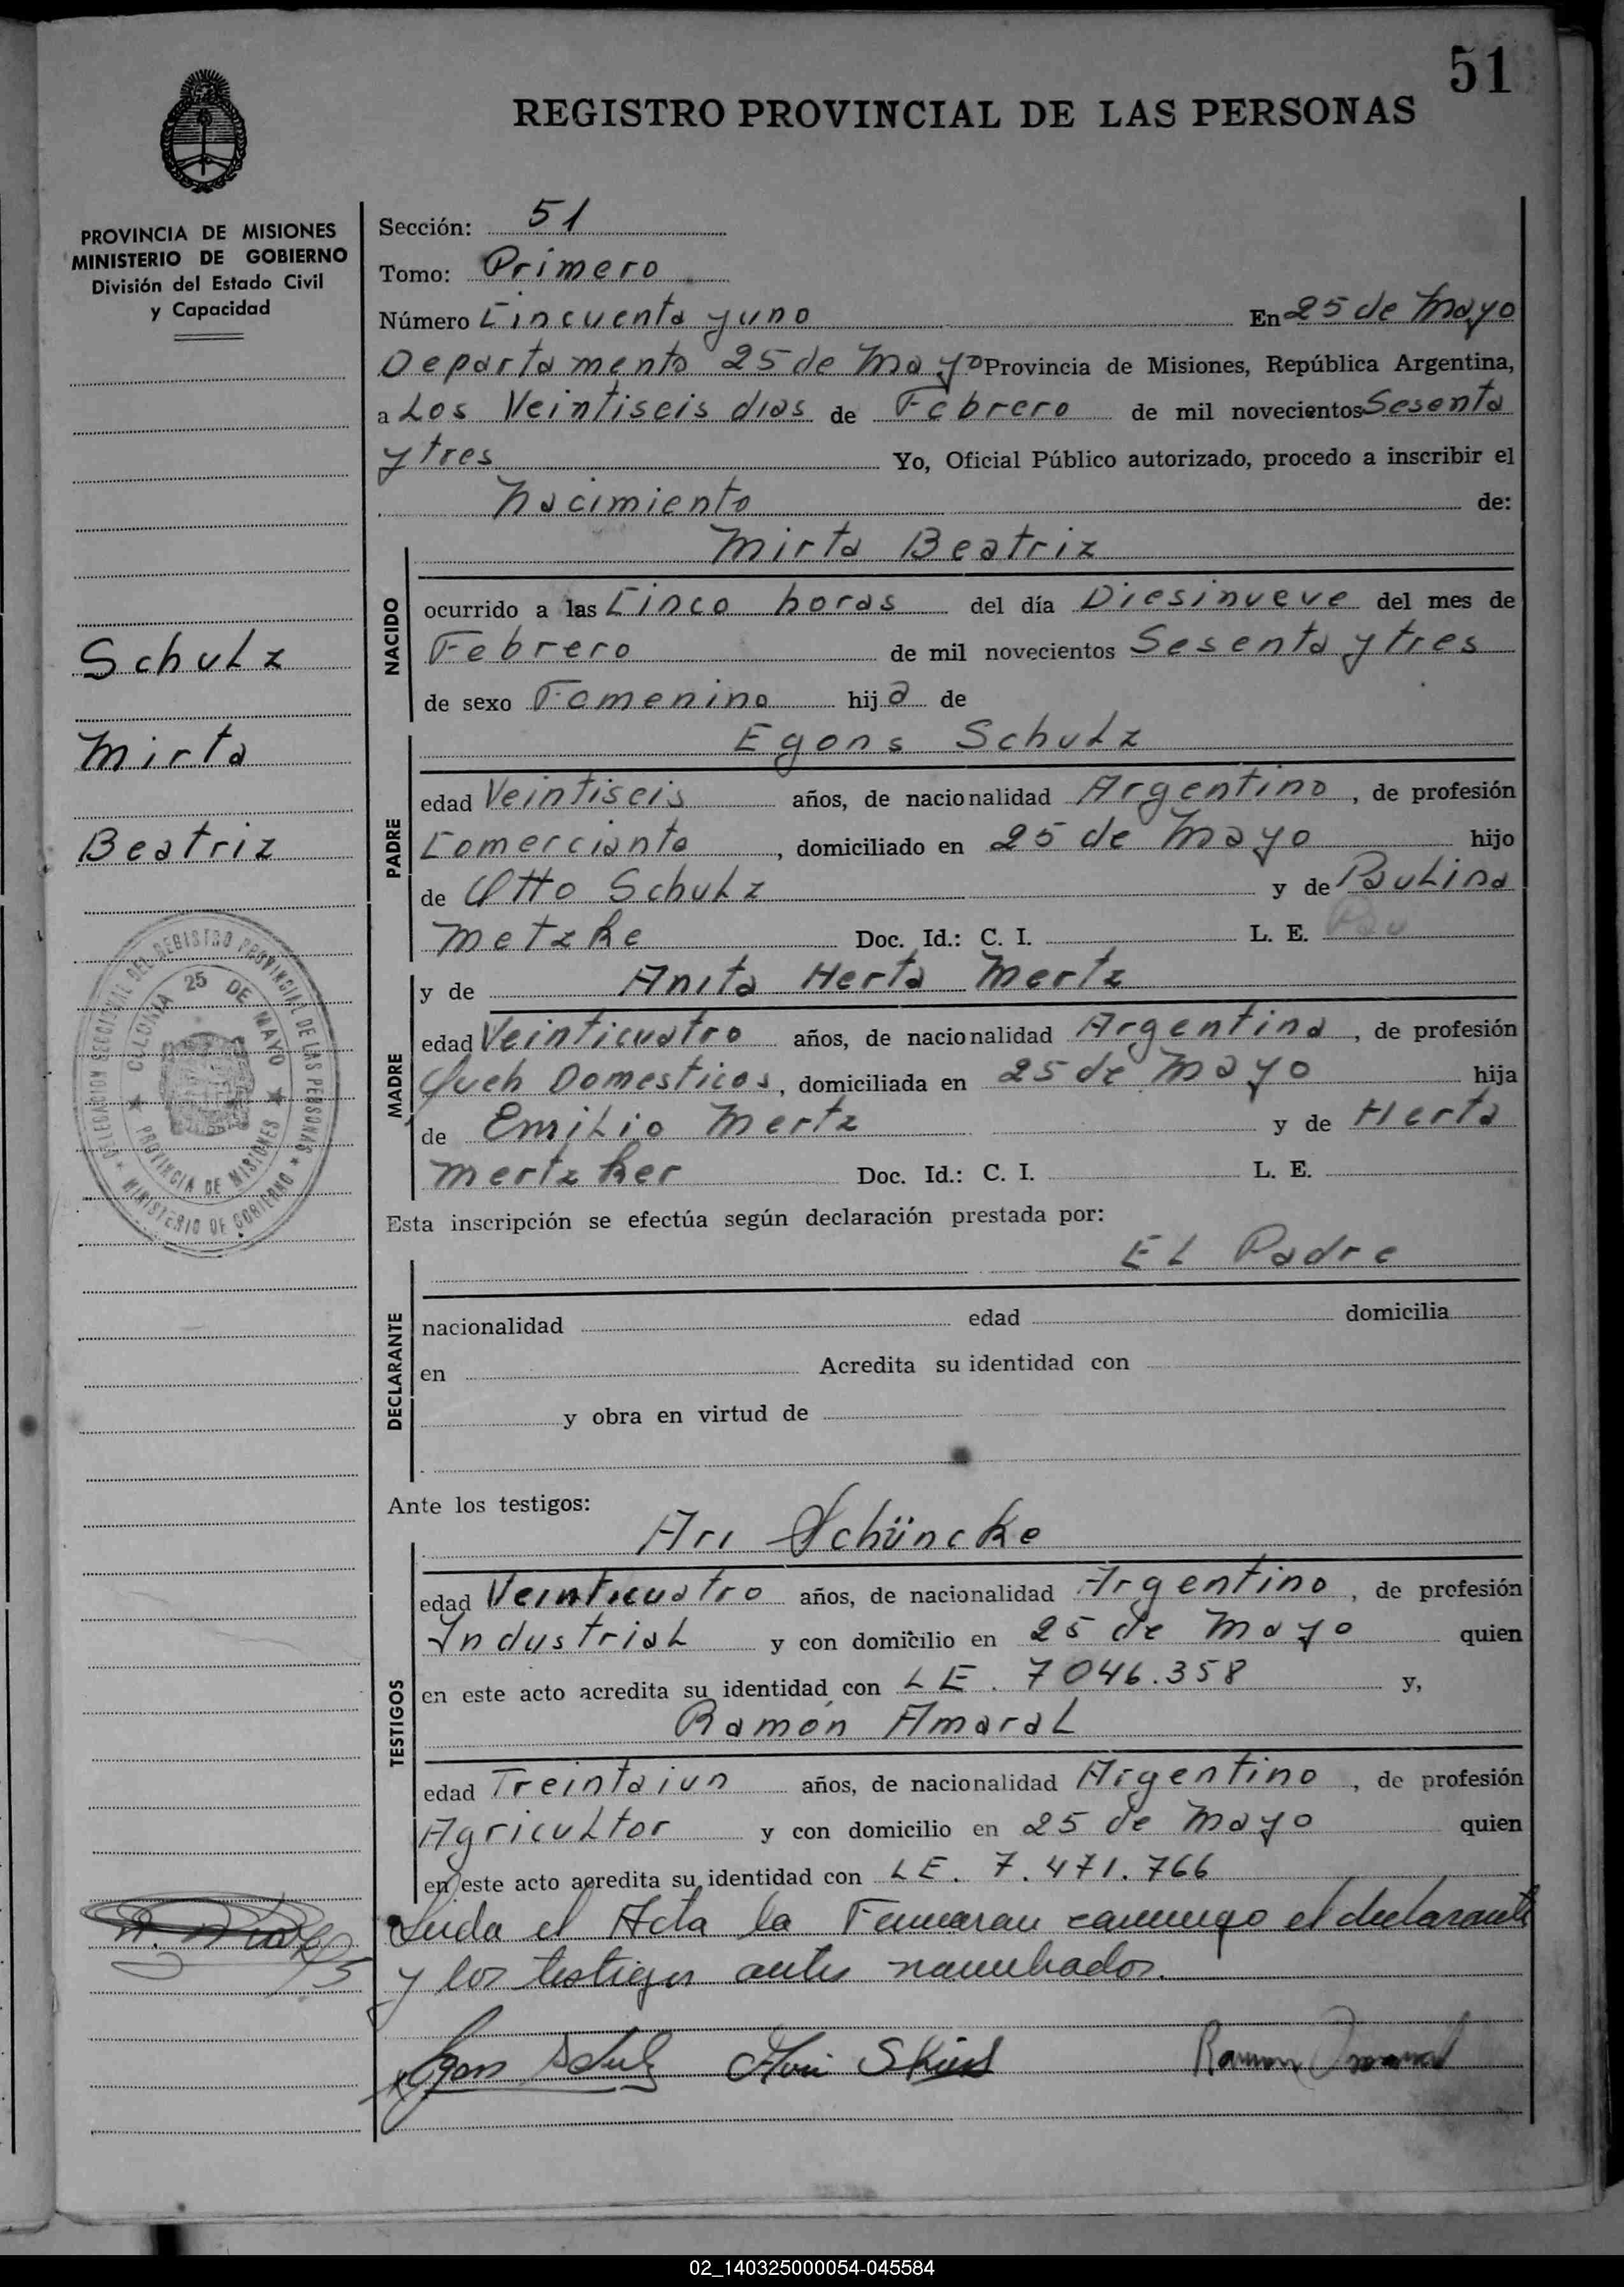 51
REGISTRO PROVINCIAL DE LAS PERSONAS
PROVINCIA DE MISIONES
MINISTERIO DE GOBIERNO
División del Estado Civil
y Capacidad
Schulz
Mirta
Beatriz
DELEGACION SECCIONAL DEL REGISTRO PROVINCIAL DE LAS PERSONAS
MINISTERIO DE GOBIERNO
COLONIA 25 DE MAYO
PROVINCIA DE MISIONES
Sección: 51
Tomo: Primero
Número Cincuenta y uno En 25 de Mayo
Departamento 25 de Mayo Provincia de Misiones, República Argentina,
a Los Veintiseis dias de Febrero de mil novecientos Sesenta
y tres Yo, Oficial Público autorizado, procedo a inscribir el
Nacimiento de:
NACIDO
Mirta Beatriz
ocurrido a las Cinco horas del día Diesinueve del mes de
Febrero de mil novecientos Sesenta y tres
de sexo Femenino hija de
PADRE
Egons Schulz
edad Veintiseis años, de nacionalidad Argentino, de profesión
Comerciante, domiciliado en 25 de Mayo hijo
de Otto Schulz y de Paulina
Metzke Doc. Id.: C. I. L. E. Pau
MADRE
y de Anita Herta Mertz
edad Veinticuatro años, de nacionalidad Argentina, de profesión
Queh Domesticos, domiciliada en 25 de Mayo hija
de Emilio Mertz y de Herta
Mertzker Doc. Id.: C. I. L. E.
Esta inscripción se efectúa según declaración prestada por:
DECLARANTE
El Padre
nacionalidad edad domicilia
en Acredita su identidad con
y obra en virtud de
Ante los testigos:
TESTIGOS
Ari Schüncke
edad Veinticuatro años, de nacionalidad Argentino, de profesión
Industrial y con domicilio en 25 de Mayo quien
en este acto acredita su identidad con LE. 7046.358 y,
Ramón Amaral
edad Treintaiun años, de nacionalidad Argentino, de profesión
Agricultor y con domicilio en 25 de Mayo quien
en este acto acredita su identidad con LE. 7.471.766
Leida el Acta la Firmaran conmigo el declarante
y los testigos antes nombrados.
Egon Schulz
Ramon
02_140325000054-045584